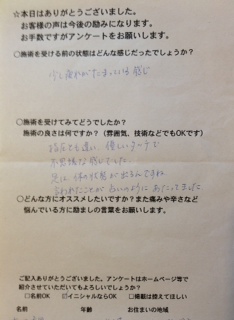 ☆本日はありがとうございました。
お客様の声は今後の励みになります。
お手数ですがアンケートをお願いします。
○施術を受ける前の状態はどんな感じだったでしょうか?
少し疲れがたまっている感じ
○施術を受けてみてどうでしたか?
施術の良さは何ですか?(雰囲気、技術などでもOKです)
指圧とも違い、優しいタッチで
不思議な感じでした。
足に体の状態が出るんですね
言われたことが占いのようにあたってました
○どんな方にオススメしたいですか?また痛みや辛さなど
悩んでいる方に励ましの言葉をお願いします。
ご記入ありがとうございました。アンケートはホームページ等で
紹介させていただいてもよろしいでしょうか?
□名前OK ☑イニシャルならOK □掲載は控えてほしい
名前 年齢 お住まいの地域